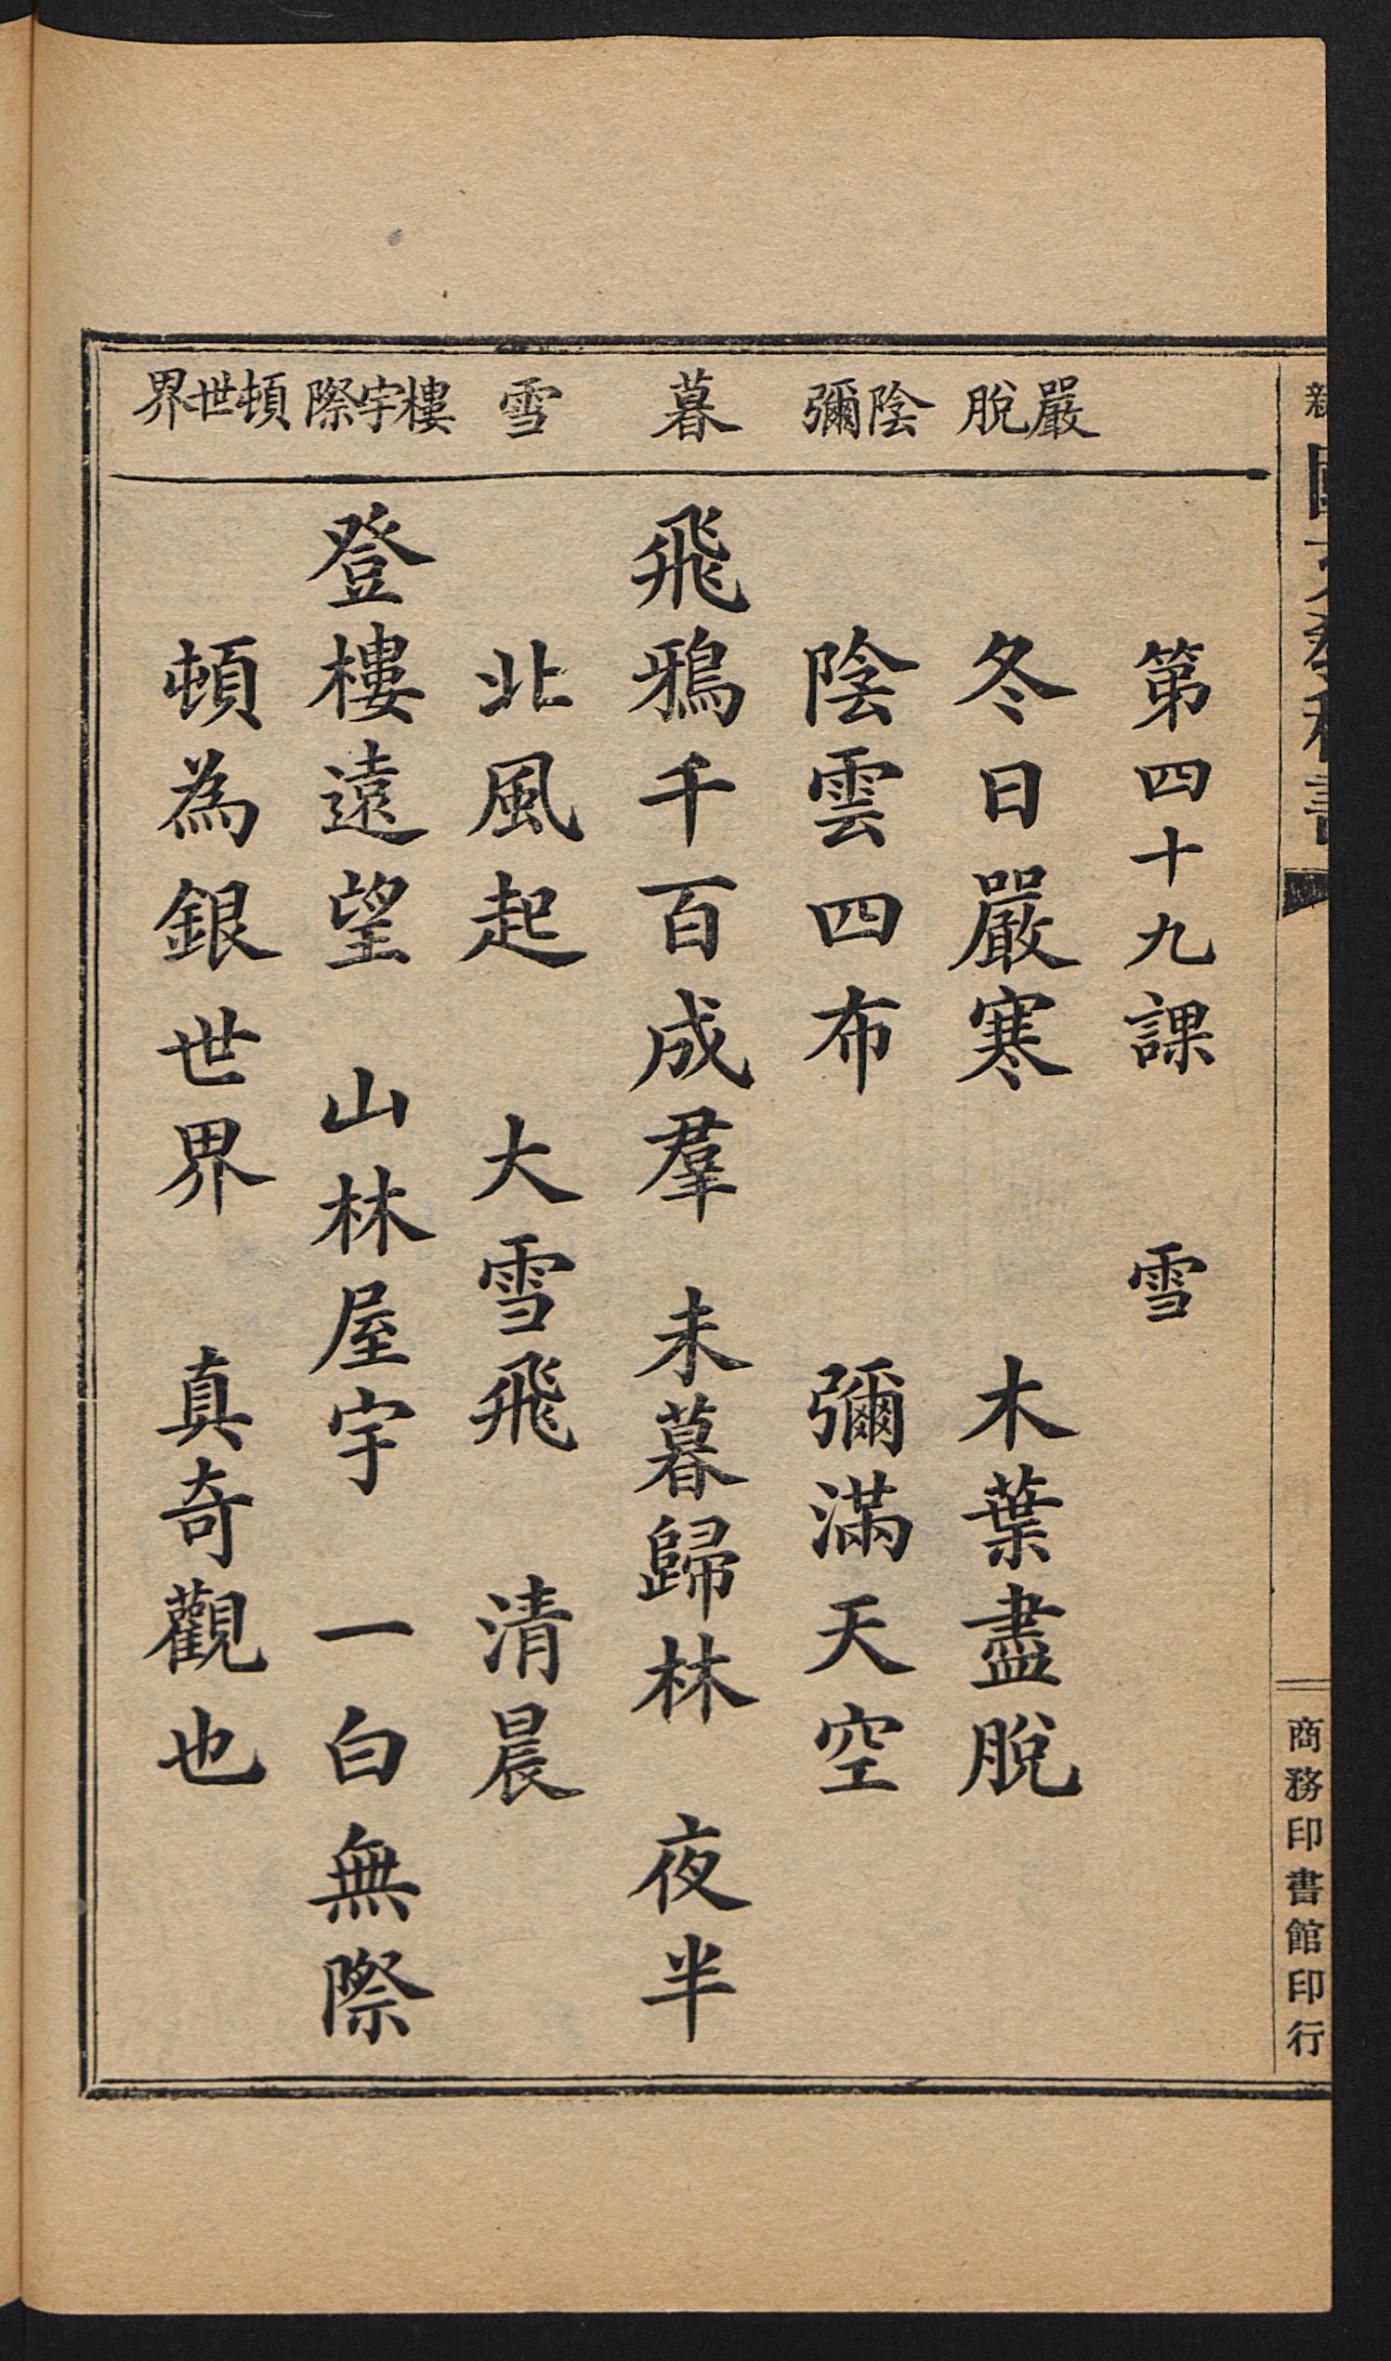 第四十九課 雪
嚴脫
冬日嚴寒 木葉盡脫
陰彌
陰雲四布 彌滿天空
暮
飛鴉千百成羣 未暮歸林 夜半
雪
北風起 大雪飛 清晨
樓宇際
登樓遠望 山林屋宇 一白無際
頓世界
頓為銀世界 真奇觀也
商務印書館印行